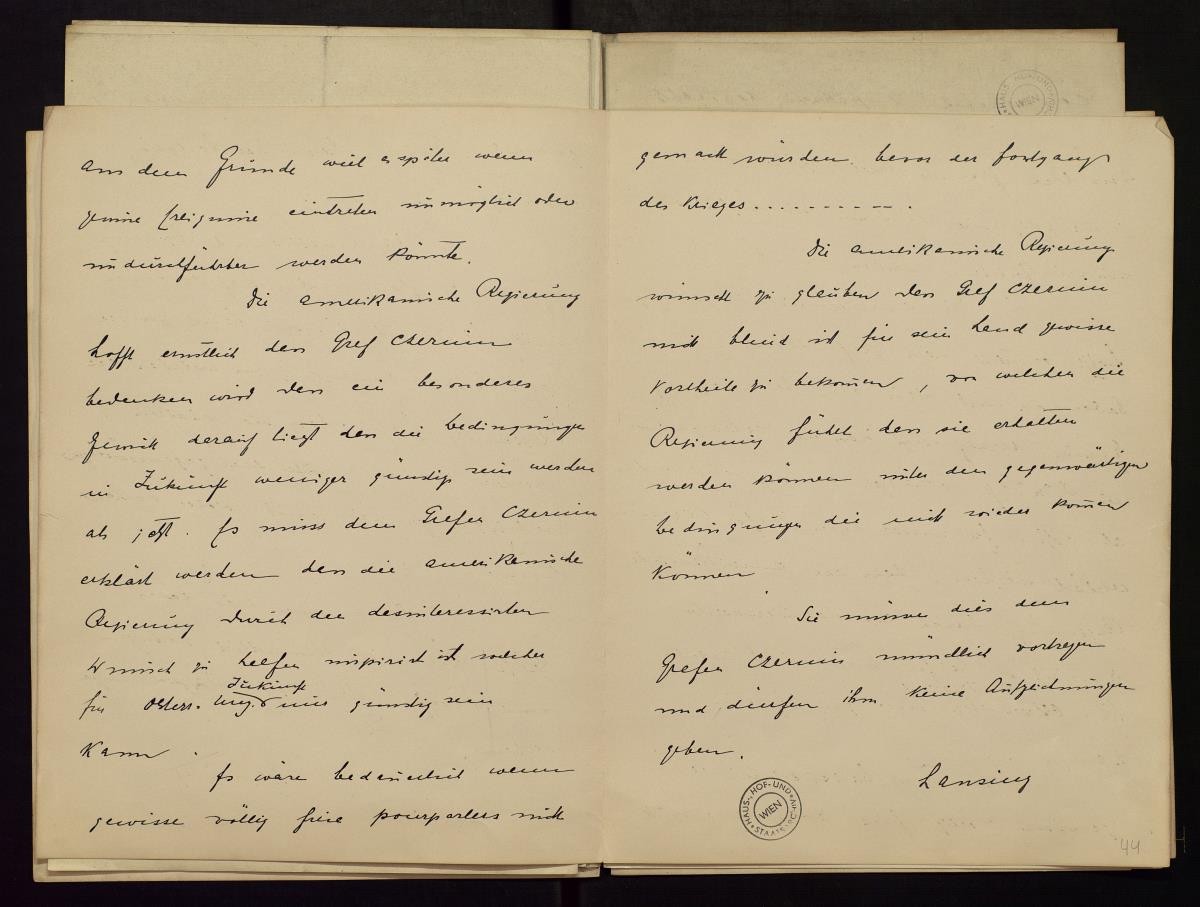 aus dem Grunde weil es später wenn
gewisse Ereignisse eintreten unmöglich oder
undurchführbar werden könnte.
Die amerikanische Regierung
hofft ernstlich dass Graf Czernin
bedenken wird dass ein besonderes
Gewicht darauf liegt dass die bedingungen
in Zukunft weniger günstig sein werden
als jetzt. Es muss dem Grafen Czernin
erklärt werden dass die amerikanische
Regierung durch den desinteressirten
Wunsch zu helfen inspirirt ist welcher
Zukunft
für Österr. Ung. nur günstig sein
kann.
Es wäre bedauerlich wenn
gewisse völlig freie pourparlers nicht
gemacht würden bevor der fortgang
des Krieges ..........
Die amerikanische Regierung
wünscht zu glauben dass Graf Czernin
nicht blind ist für sein Land gewisse
Vortheile zu bekommen, von welchen die
Regierung fühlt dass sie erhalten
werden können unter den gegenwärtigen
bedingungen die nicht wieder kommen
können
Sie müssen dies dem
Grafen Czernin mündlich vortragen
und dürfen ihm keine Aufzeichnungen
geben.
Lansing
HAUS-, HOF- UND STAATSARCHIV WIEN
44